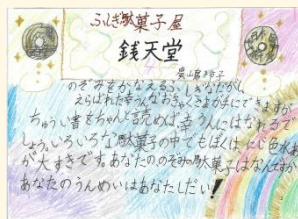 ふしぎ駄菓子屋
銭天堂
廣嶋玲子
のぞみをかなえるふしぎなだがし
えらばれた幸うんなおきゃくさまが手にできますが
ちゅうい書をちゃんと読めば、幸う人にはなれるで
しょう。いろいろな駄菓子の中でもぼくは、にじ色水あ
が大すきです。あなたののぞみの駄菓子はなんですか
あなたのうんめいはあなたしだい!